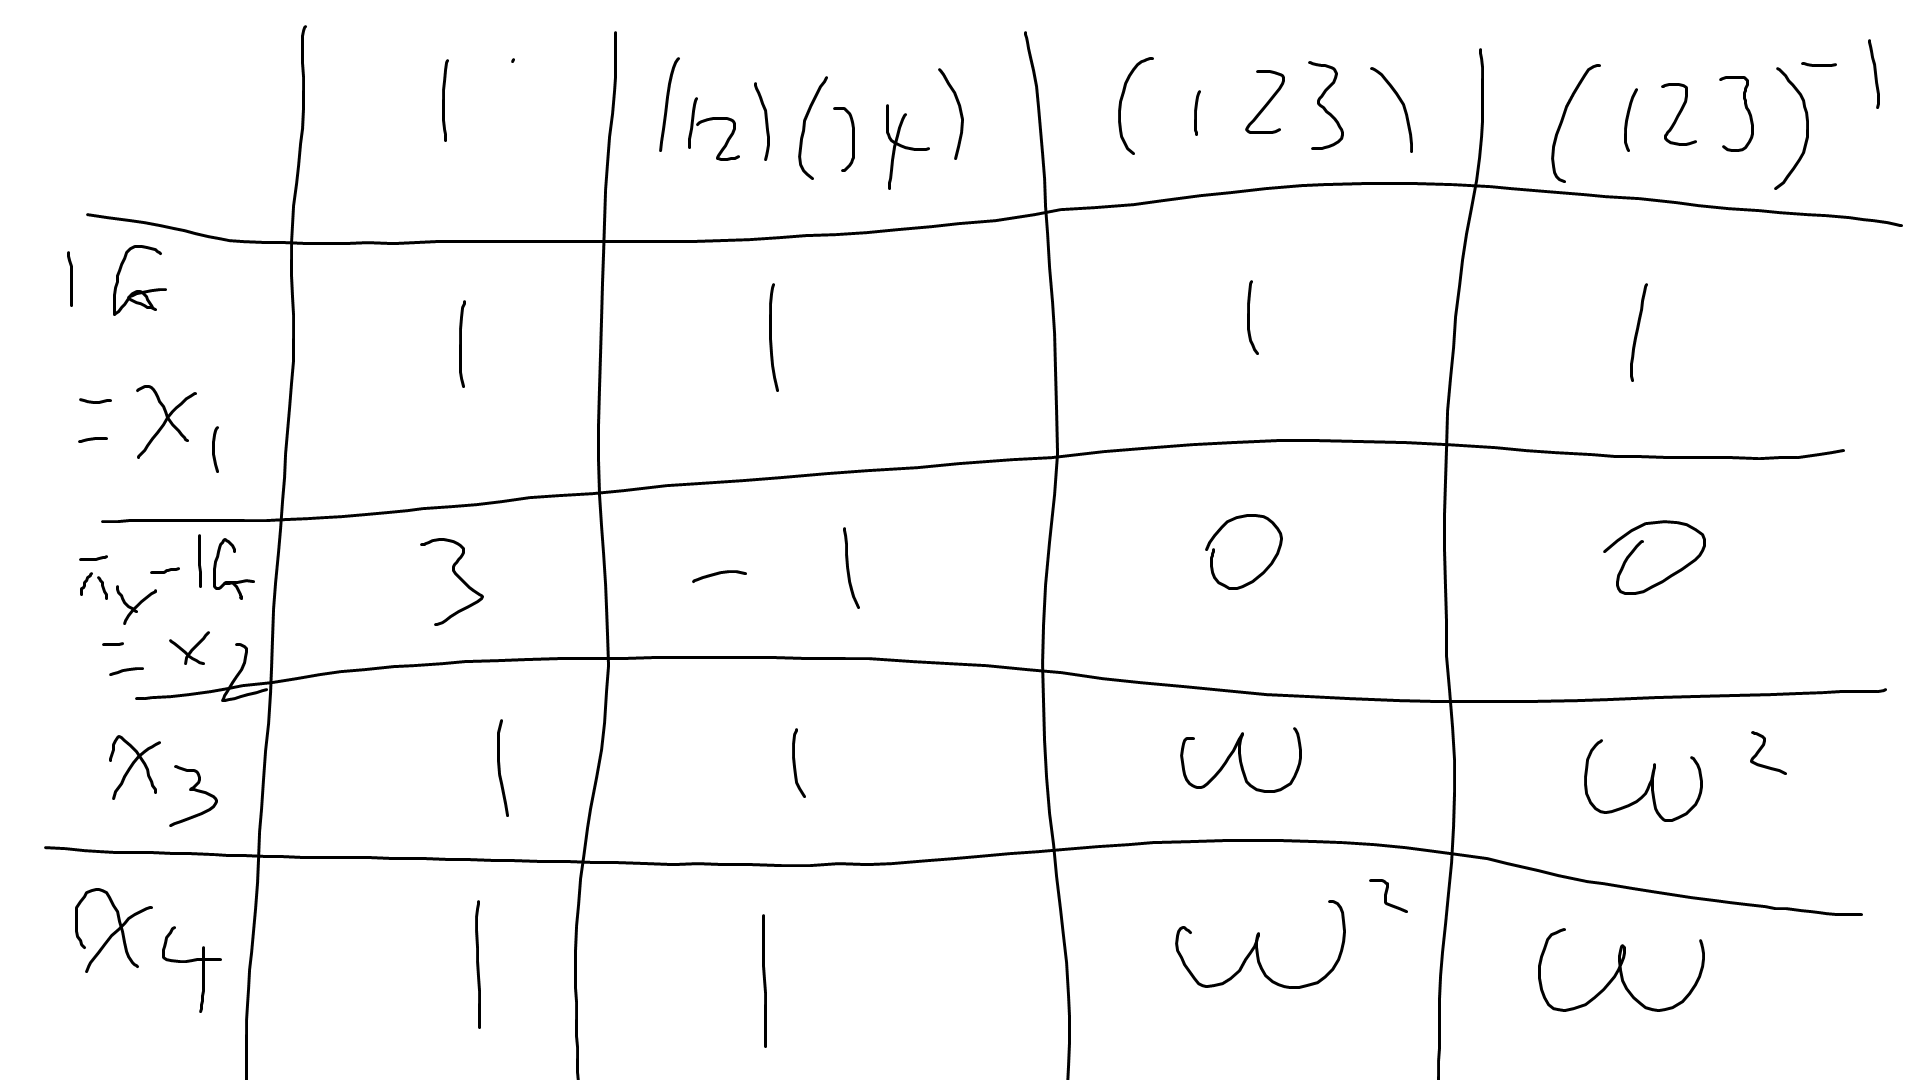 1 (12)(34) (123) (123)⁻¹
1G
= χ₁ 1 1 1 1
πₓ - 1G 3 -1 0 0
= χ₂
χ₃ 1 1 ω ω²
χ₄ 1 1 ω² ω